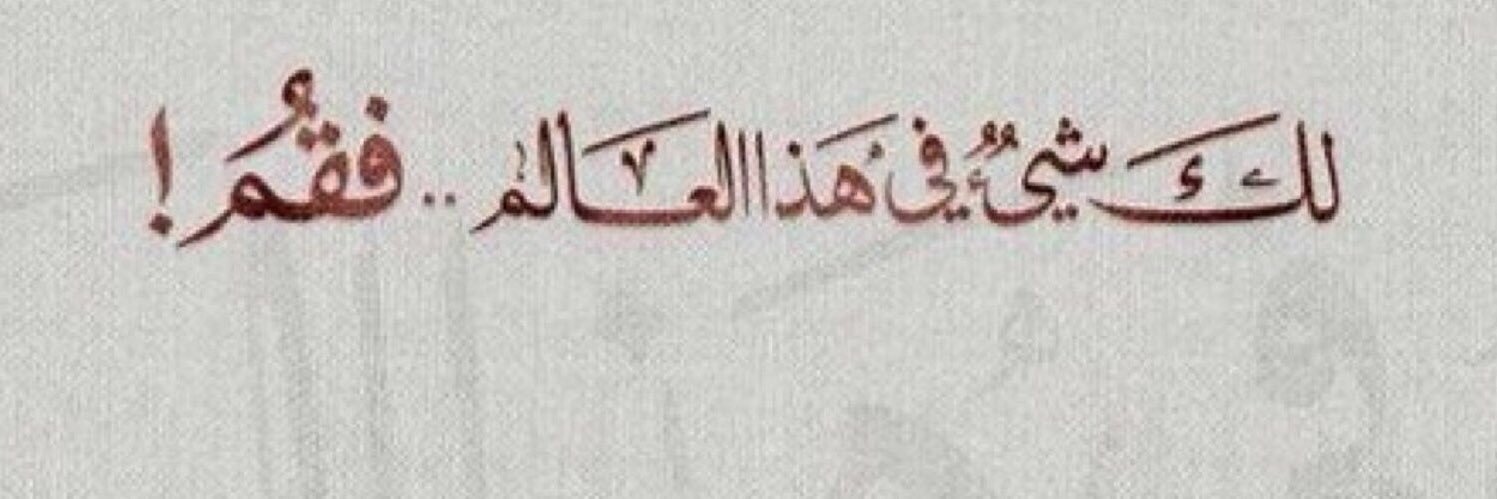 لك شيءٌ في هَذا العالم .. فقُمَ !